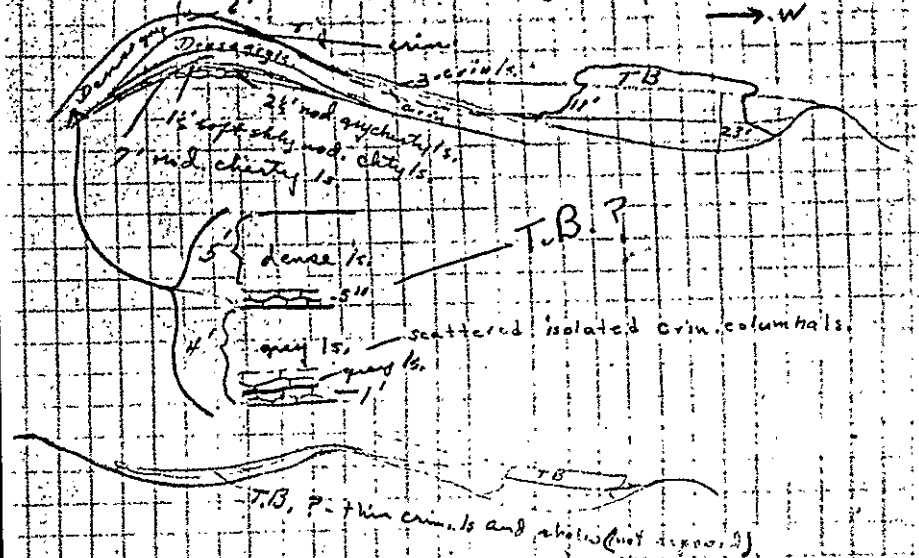 6'
→ W
Dense gry
crin.
Dense gr ls.
3' crin ls.
T B
crin
11'
23'
2½' nod gry cherty ls.
1½' soft shly nod. chty ls.
7' nod. cherty ls
T.B.?
5' dense ls.
5"
4' grey ls. scattered isolated crin. columnals.
grey ls.
1'
T B
T.B. ? - thin crin. ls and shales (not exposed)